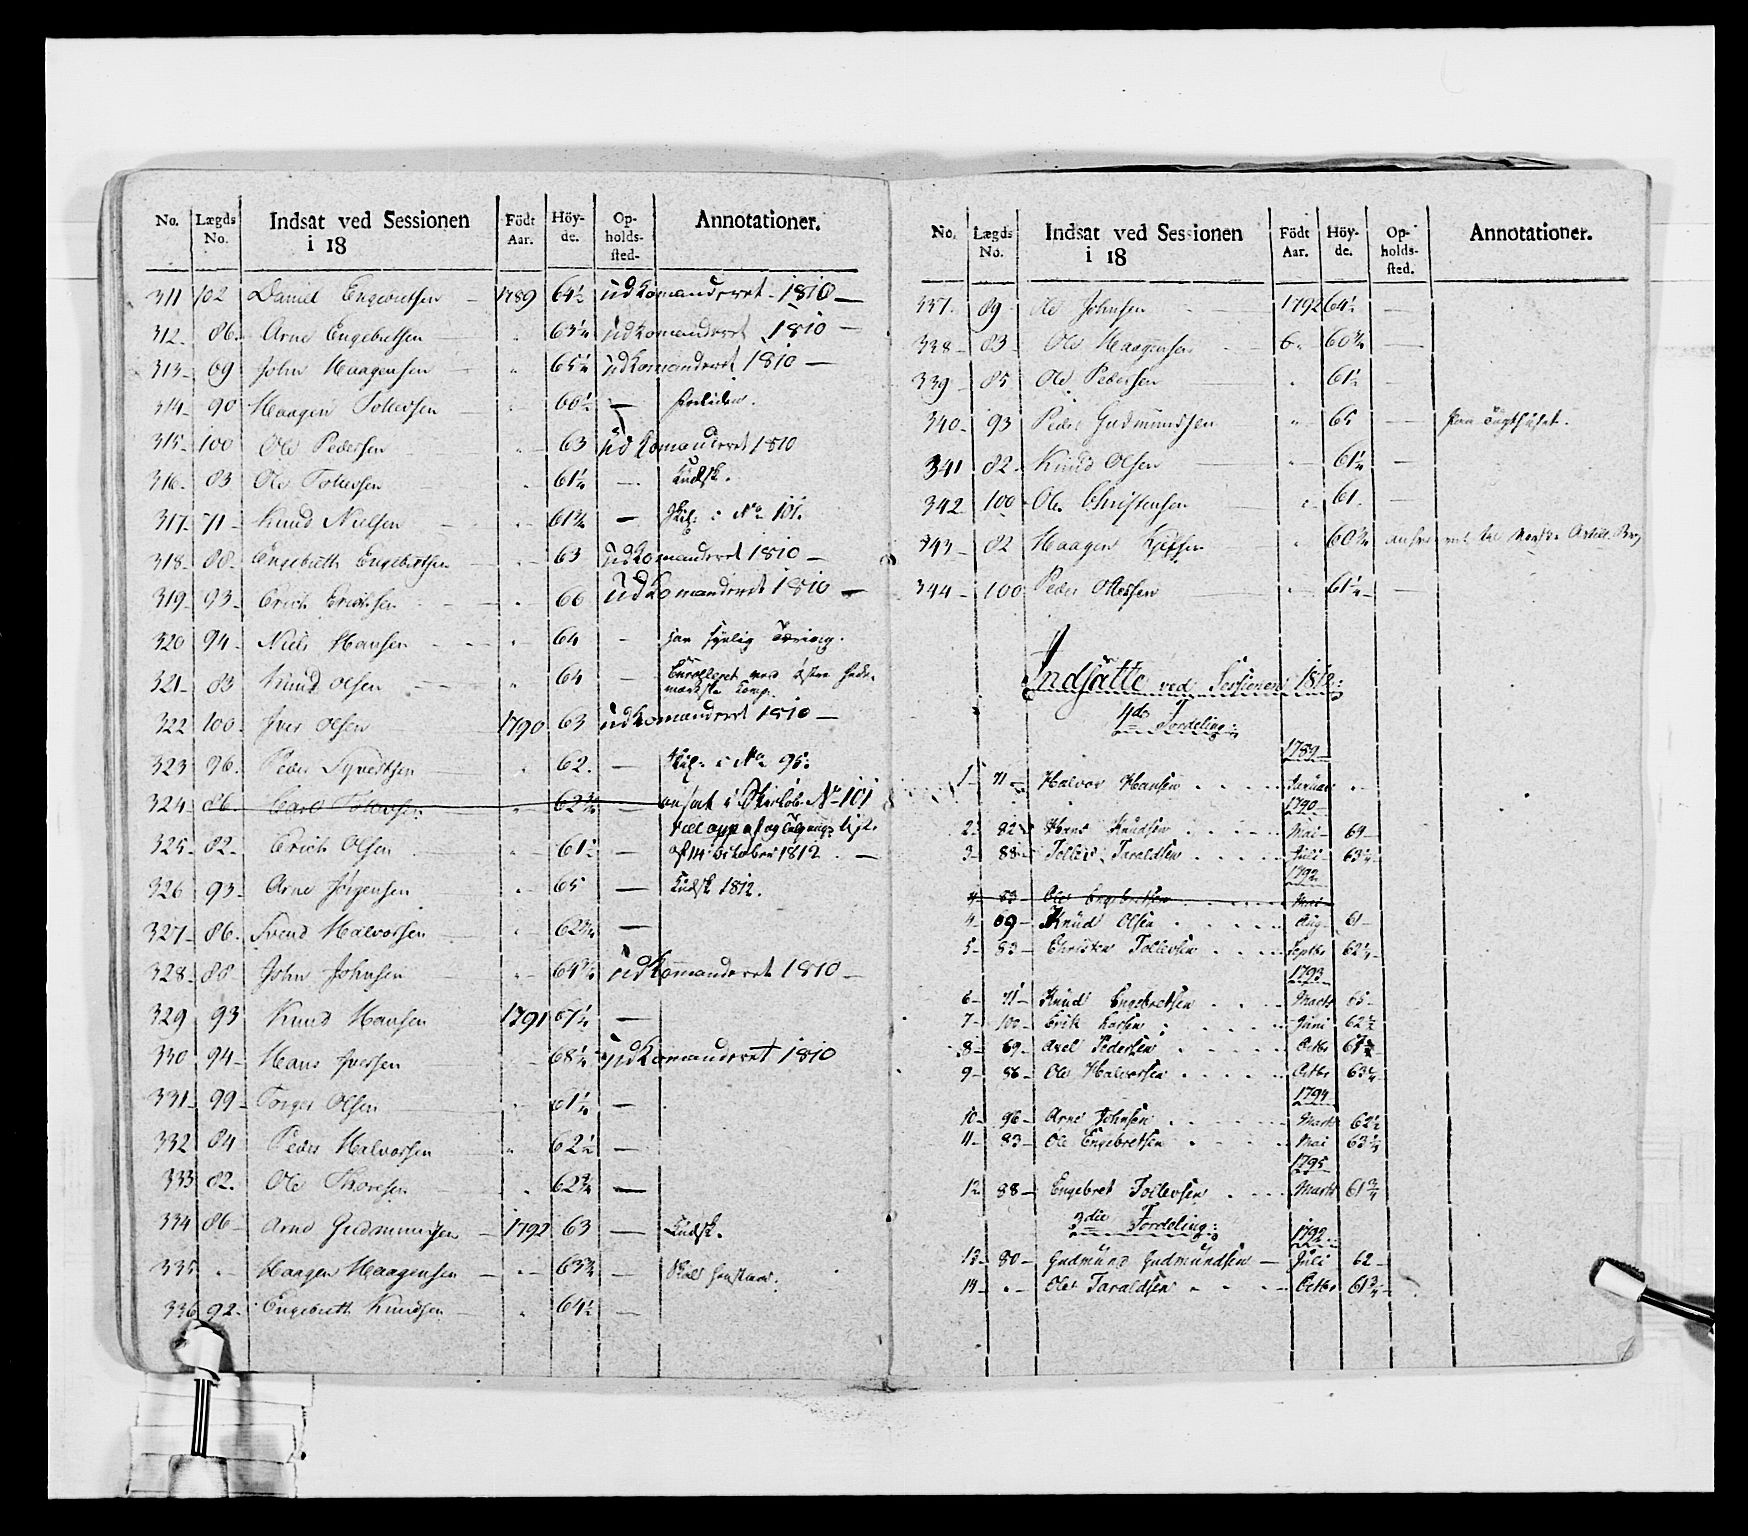 No. Lægds No. Indsat ved Sessionen i 18 Födt Aar. Höy- de. Op- holds- sted- Annotationer.
311 102 Daniel Engebretsen 1789 64½ udkomanderet 1810
312 86 Arne Engebretsen 63¼ udkomanderet 1810
313 69 John Haagensen 65¼ udkomanderet 1810
314 90 Haagen Tollevsen 60½ —
315 100 Ole Pedersen 63 udkomanderet 1810
316 83 Ole Tollevsen 61¼ — Kudsk.
317 71 Knud Nielsen 61¾ — No 101.
318 88 Engebreth Engebrethsen 63 udkomanderet 1810
319 93 Erich Erichsen 66 udkomanderet 1810
320 94 Niels Hansen 64 - har synlig Tæring.
321 83 Knud Olsen 64 - Enrolleret ved Østre Hede-
markske Comp.
322 100 Iver Olsen 1790 63 udkomanderet 1810
323 96 Peder Syvertsen 62 — No 96.
324 86 Carl Tollevsen 62¾ ansat i Skielöb. No 101
325 82 Erich Olsen 61½ — af 14 October 1812
326 93 Arne Jörgensen 65 — Kudsk 1812.
327 86 Svend Halvorsen 62¾ —
328 85 John Johnsen 64¾ udkomanderet 1810
329 93 Knud Hansen 1791 67¼ —
330 94 Hans Iversen 68¼ udkomanderet 1810
331 99 Torger Olsen 61¼ —
332 84 Peder Halvorsen 62½ —
333 82 Ole Thoresen 62¾ —
334 86 Arne Gudmundsen 1792 63 — Kudsk.
335 Haagen Haagensen 63¾ —
336 92 Engebreth Knudsen 64½ —
No. Lægds No. Indsat ved Sessionen i 18 Födt Aar. Höy- de. Op- holds- sted. Annotationer.
337 89 Ole Johnsen 1792 64½
338 83 Ole Haagensen 60¾ —
339 85 Ole Pedersen 61½ -
340 93 Peder Gudmundsen 65 — paa Tugthuset.
341 82 Knud Olsen 61¼ -
342 100 Ole Christensen 61 -
343 82 Haagen 60¾
344 100 Peder Ottersen 61¼ -
Indsatte ved Sessionen 1812:
4de Fordeling:
1789
1 71 Halvor Hansen Januar
1790
2 82 Hans Knudsen Mai 69
3 88 Tollev Taraldsen Juli 63¼
1792
4 83 Ole Engebretsen Mai
4 69 Knud Olsen Aug 61
5 83 Christen Tollevsen Septbr 62¼
1793
6 71 Knud Engebretsen Marts 65
7 100 Erik Larsen Juni 62½
8 69 Axel Pedersen Octbr 61¾
9 86 Ole Halvorsen Octbr 63¼
1794
10 96 Arne Johnsen Marts 62½
11 83 Ole Engebretsen Mai 63¼
1795
12 88 Engebret Tollevsen Marts 61¾
3die Fordeling:
1792
13 80 Gudmund Gudmundsen Juli 62
14 Ole Taraldsen Octbr 61¾